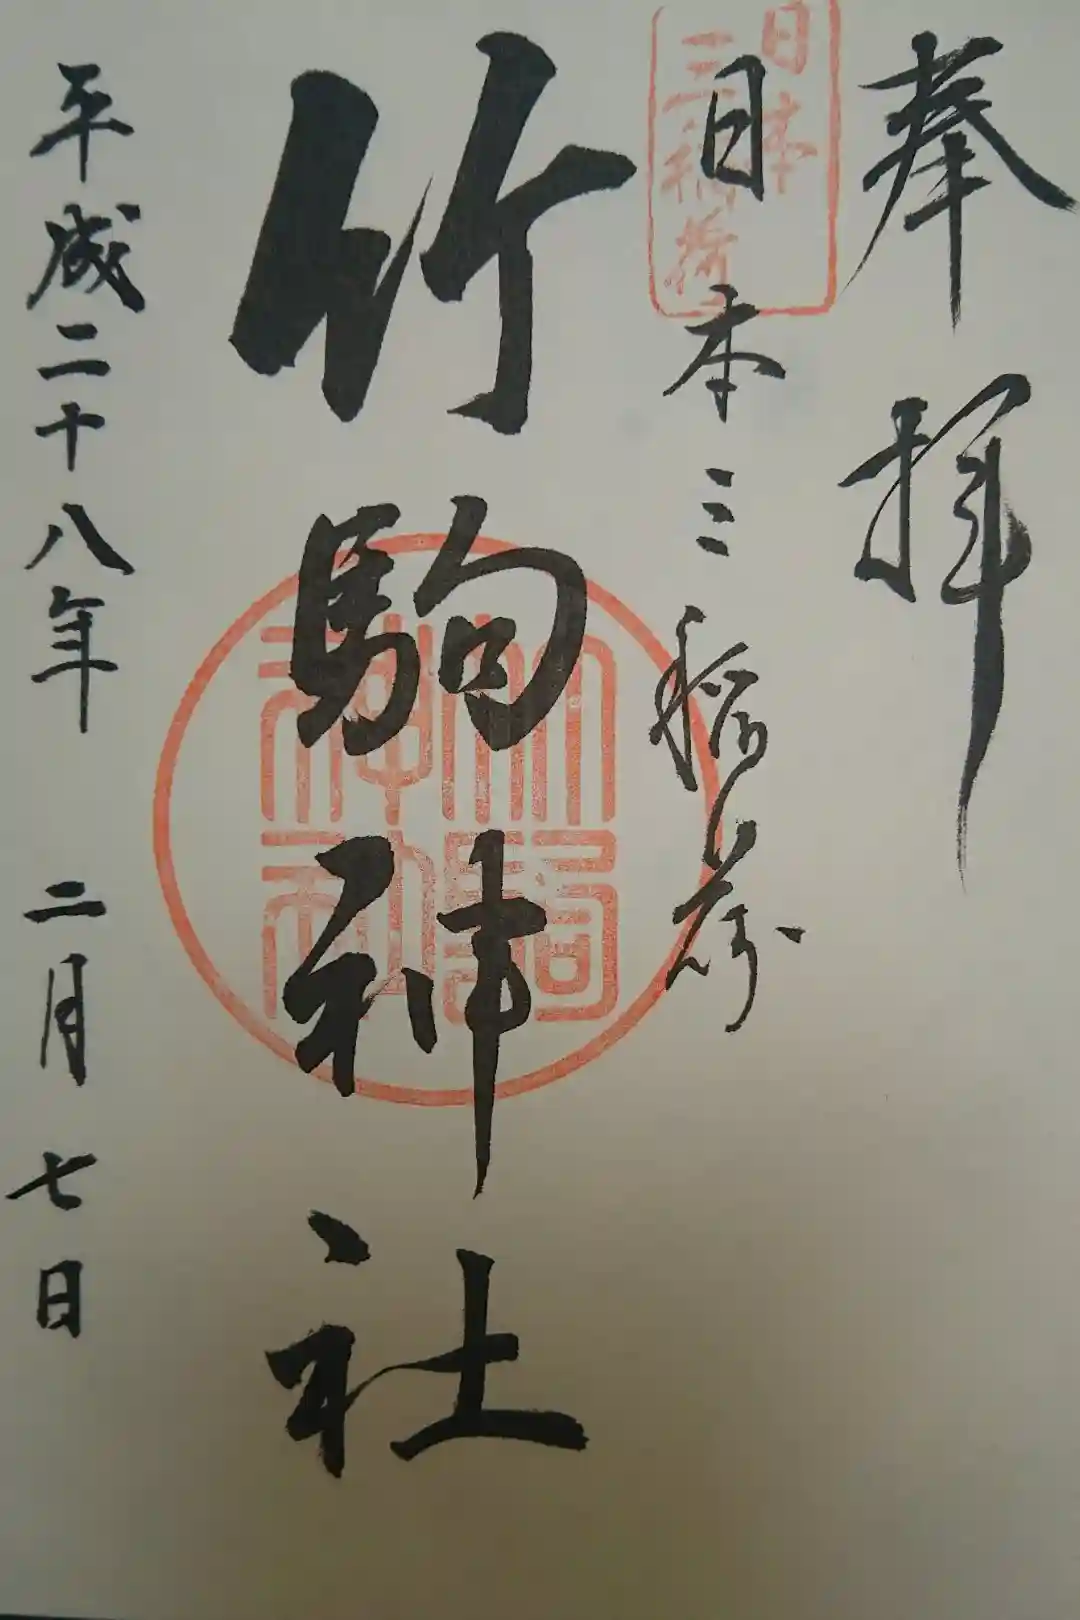 奉拝
日本
三稲荷
日本三稲荷
竹駒神社
竹駒
神社
平成二十八年 二月 七日